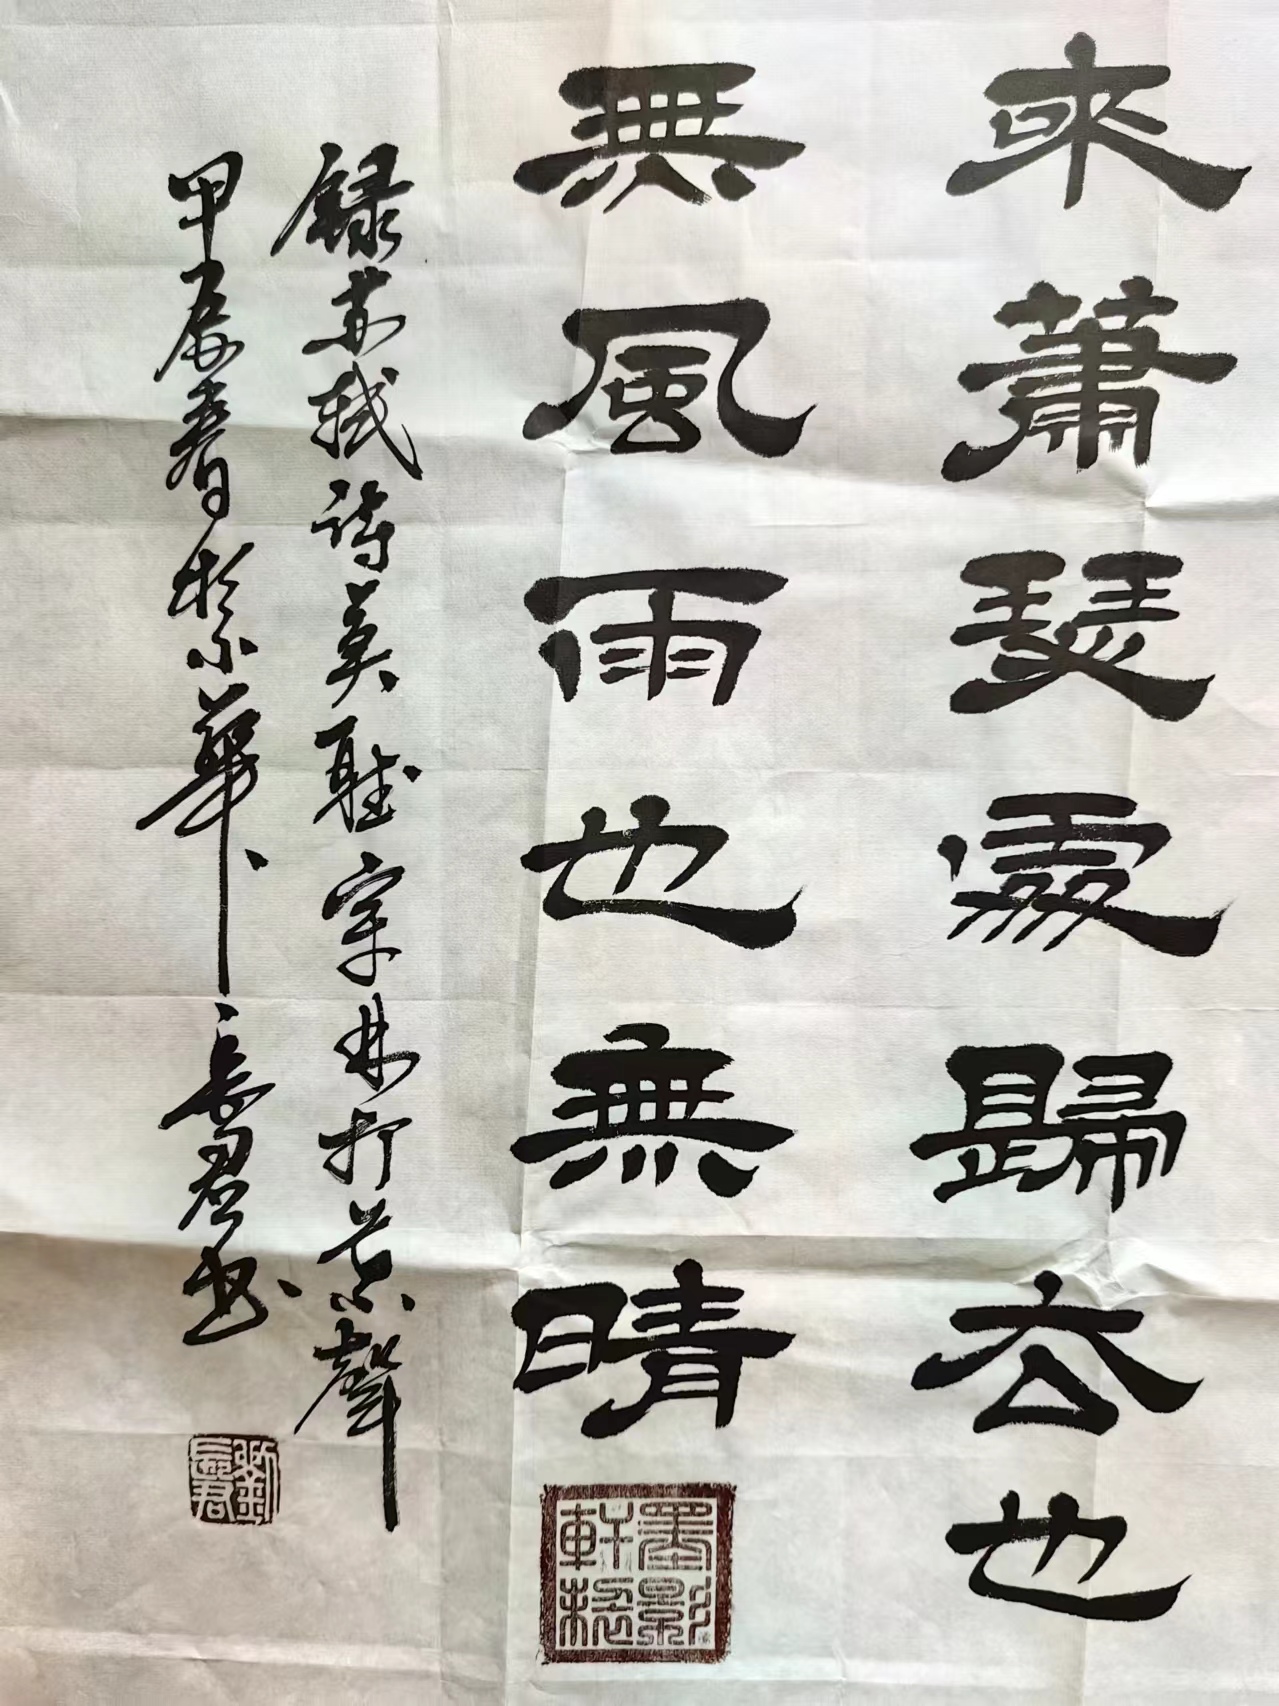 來蕭瑟處歸去也
無風雨也無晴
錄蘇軾詩莫聽穿林打葉聲
甲辰春於京華長君書
劉長君
墨影軒